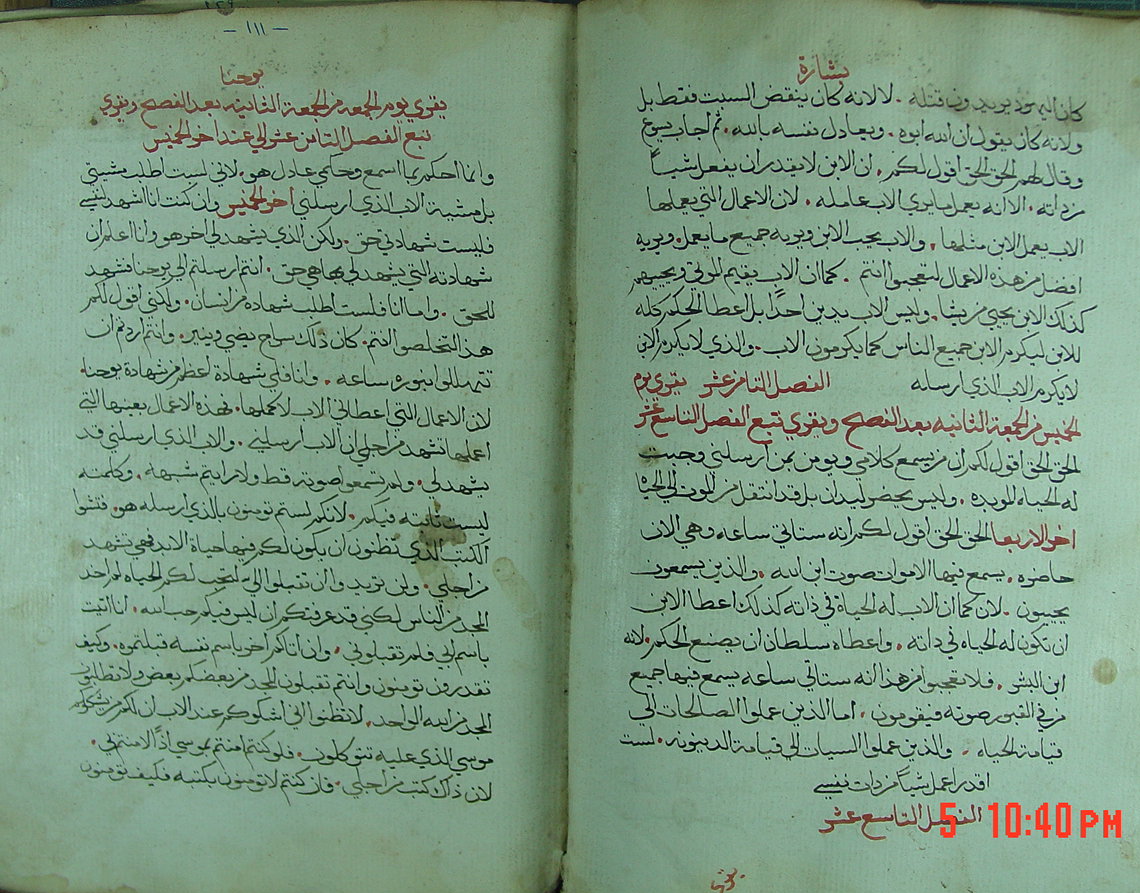 بشارة
كان اليهود يريدون قتله . لا لانه كان ينقض السبت فقط بل
ولانه كان يقول ان الله ابوه . ويعادل نفسه بالله . ثم اجاب يسوع
وقال لهم الحق الحق اقول لكم . ان الابن لا يقدر ان يفعل شياً
من ذاته . الا انه يعمل ما يري الاب عامله . لان الاعمال التي يعملها
الاب يعمل الابن مثلها . والاب يحب الابن ويريه جميع ما يعمل . ويريه
افضل من هذه الاعمال لتعجبوا انتم . كما ان الاب يقيم الموتي ويحييهم
كذلك الابن يحيي من يشا . وليس الاب يدين احداً بل اعطا الحكم كله
للابن ليكرم الابن جميع الناس كما يكرمون الاب . والذي لا يكرم الابن
لا يكرم الاب الذي ارسله الفصل الثامن عشر يقري يوم
الخميس من الجمعة الثانيه بعد الفصح ويقري تبع الفصل التاسع عشر
الحق الحق اقول لكم ان من يسمع كلامي ويومن بمن ارسلني وجبت
له الحياه الموبده . وليس يحضر ليدان بل قد انتقل من الموت الي الحياه
اخر الاربعا الحق الحق اقول لكم انه ستاتي ساعه وهي الان
حاضره . يسمع فيها الاموات صوت ابن الله . والذين يسمعون
يحييون . لان كما ان الاب له الحياة في ذاته كذلك اعطا الابن
ان تكون له الحياه في ذاته . واعطاه سلطان ان يصنع الحكم . لانه
ابن البشر . فلا تعجبوا من هذا انه ستاتي ساعه يسمع فيها جميع
من في القبور صوته فيقومون . اما الذين عملوا الصالحات الي
قيامة الحياه . والذين عملوا السيات الي قيامة الدينونه . لست
اقدر اعمل شيا من ذات نفسي
الفصل التاسع عشر
5 10:40 PM
- ١١١ -
يوحنا
يقري يوم الجمعه من الجمعة الثانيه بعد الفصح ويقري
تبع الفصل الثامن عشر الي عند اخر الخميس
وانما احكم بما اسمع وحكمي عادل هو . لاني لست اطلب مشيتي
بل مشية الاب الذي ارسلني اخر الخميس وان كنت انا اشهد لنفسي
فليست شهادتي حق . ولكن الذي يشهد لي اخر هو وانا اعلم ان
شهادته التي يشهد لي بها هي حق . انتم ارسلتم الي يوحنا فشهد
للحق . واما انا فلست اطلب شهاده من انسان . ولكني اقول لكم
هذا لتخلصوا انتم . كان ذلك سراج يضي وينير . وانتم اردتم ان
تتهللوا بنوره ساعه . وانا فلي شهادة اعظم من شهادة يوحنا .
لان الاعمال التي اعطاني الاب لاكملها . فهذه الاعمال بعينها التي
اعملها تشهد من اجلي ان الاب ارسلني . والاب الذي ارسلني قد
يشهد لي . ولم تسمعوا صوته قط ولا رايتم شبهه . وكلمته
ليست ثابته فيكم . لانكم لستم تومنون بالذي ارسله هو . فتشوا
الكتب الذي تظنون ان يكون لكم فيها حياة الابد فهي تشهد
من اجلي . ولن تريدوا ان تقبلوا الي لتجب لكم الحياه لم اخد
المجد من الناس لكني قد عرفتكم ان ليس فيكم حب الله . انا اتيت
باسم ابي فلم تقبلوني . وان اتاكم اخر باسم نفسه قبلتموه . وكيف
تقدرون تومنون وانتم تقبلون المجد من بعضكم بعض ولا تطلبون
المجد من الله الواحد . لا تظنوا اني اشكوكم عند الاب ان لكم من يشكوكم
موسي الذي عليه تتوكلون . فلو كنتم امنتم بموسي اذاً لامنتم بي .
لان ذاك كتب من اجلي . فان كنتم لا تومنون بكتبه فكيف تومنون